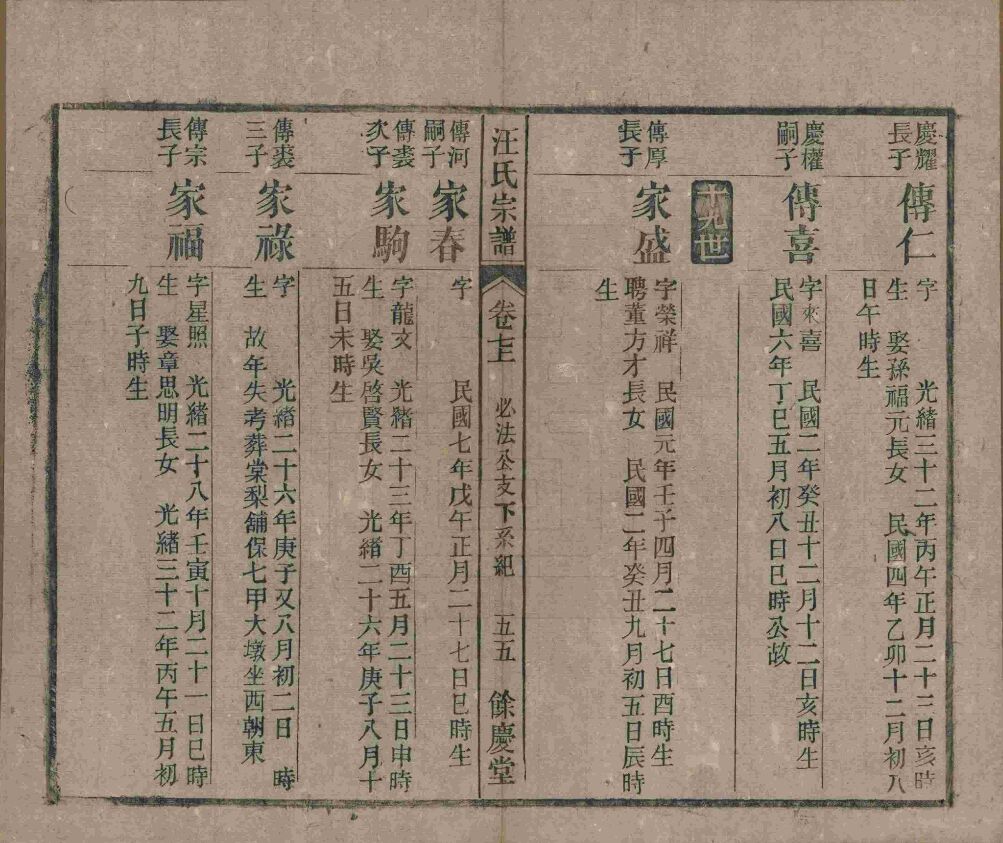 慶耀
長子
傳仁
字　光緒三十二年丙午正月二十三日亥時
生　娶孫福元長女　民國四年乙卯十二月初八
日午時生
慶權
嗣子
傳喜
字來喜　民國二年癸丑十二月十二日亥時生
民國六年丁巳五月初八日巳時公故
十九世
傳厚
長子
家盛
字榮祥　民國元年壬子四月二十七日酉時生
聘董方才長女　民國二年癸丑九月初五日辰時
生
汪氏宗譜
卷七三
必法公支下系紀
五五
餘慶堂
傳河
嗣子
家春
字　民國七年戊午正月二十七日巳時生
傳裘
次子
家駒
字龍文　光緒二十三年丁酉五月二十三日申時
生　娶吳啓賢長女　光緒二十六年庚子八月十
五日未時生
傳裘
三子
家祿
字　光緒二十六年庚子又八月初二日　時
生　故年失考葬棠梨舖保七甲大墩坐西朝東
傳宗
長子
家福
字星照　光緒二十八年壬寅十月二十一日巳時
生　娶章思明長女　光緒三十二年丙午五月初
九日子時生